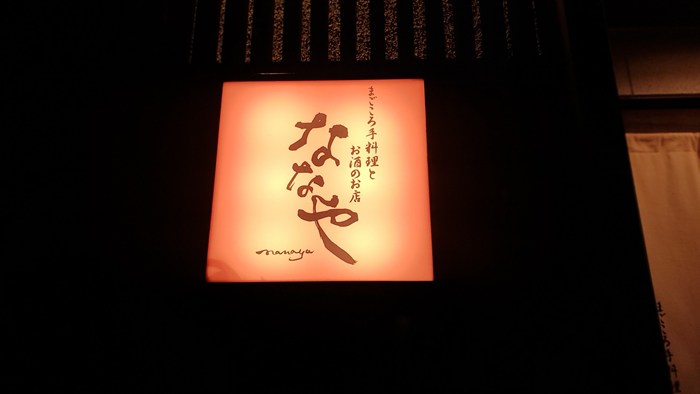 まごころ手料理と
お酒のお店
ななや
nanaya